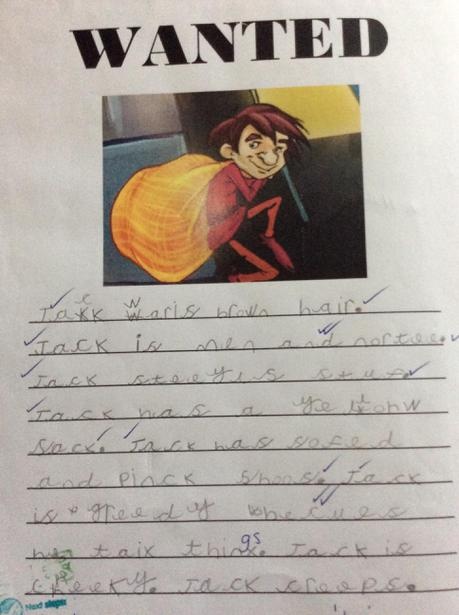 WANTED
Jack Waris brown hair.
Jack is men and nortee.
Jack steeyls stuf.
Jack has a yellohw
sack. Jack has sofed
and pinck shoos. Jack
is greedy bhecues
he taix things. Jack is
cheeky. Jack creeps.
Next steps: